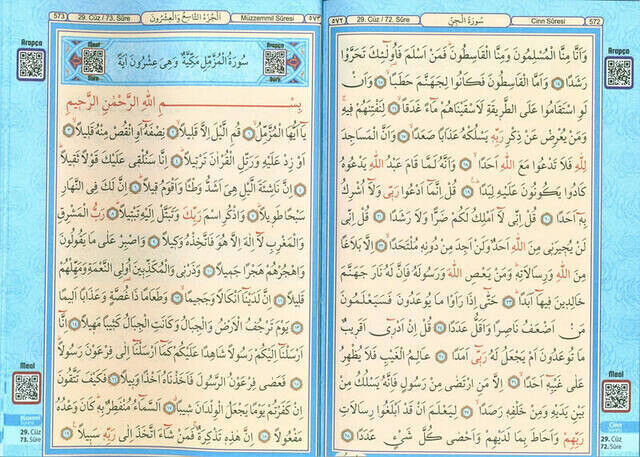 ٥٧٢ 29. Cüz / 72. Sûre سُورَةُ الْجِنِّ Cinn Sûresi 572
وَاَنَّا مِنَّا الْمُسْلِمُونَ وَمِنَّا الْقَاسِطُونَۜ فَمَنْ اَسْلَمَ فَاُو۬لٰٓئِكَ تَحَرَّوْا
رَشَدًا ﴿١٤﴾ وَاَمَّا الْقَاسِطُونَ فَكَانُوا لِجَهَنَّمَ حَطَبًاۙ ﴿١٥﴾ وَاَنْ
لَوِ اسْتَقَامُوا عَلَى الطَّر۪يقَةِ لَاَسْقَيْنَاهُمْ مَٓاءً غَدَقًاۙ ﴿١٦﴾ لِنَفْتِنَهُمْ ف۪يهِۜ
وَمَنْ يُعْرِضْ عَنْ ذِكْرِ رَبِّه۪ يَسْلُكْهُ عَذَابًا صَعَدًاۙ ﴿١٧﴾ وَاَنَّ الْمَسَاجِدَ
لِلّٰهِ فَلَا تَدْعُوا مَعَ اللّٰهِ اَحَدًاۙ ﴿١٨﴾ وَاَنَّهُ لَمَّا قَامَ عَبْدُ اللّٰهِ يَدْعُوهُ
كَادُوا يَكُونُونَ عَلَيْهِ لِبَدًاۜ ﴿١٩﴾ قُلْ اِنَّمَٓا اَدْعُوا رَبّ۪ي وَلَٓا اُشْرِكُ
بِه۪ٓ اَحَدًا ﴿٢٠﴾ قُلْ اِنّ۪ي لَٓا اَمْلِكُ لَكُمْ ضَرًّا وَلَا رَشَدًا ﴿٢١﴾ قُلْ اِنّ۪ي
لَنْ يُج۪يرَن۪ي مِنَ اللّٰهِ اَحَدٌ وَلَنْ اَجِدَ مِنْ دُونِه۪ مُلْتَحَدًاۙ ﴿٢٢﴾ اِلَّا بَلَاغًا
مِنَ اللّٰهِ وَرِسَالَاتِه۪ۜ وَمَنْ يَعْصِ اللّٰهَ وَرَسُولَهُ فَاِنَّ لَهُ نَارَ جَهَنَّمَ
خَالِد۪ينَ ف۪يهَٓا اَبَدًاۜ ﴿٢٣﴾ حَتّٰٓى اِذَا رَاَوْا مَا يُوعَدُونَ فَسَيَعْلَمُونَ
مَنْ اَضْعَفُ نَاصِرًا وَاَقَلُّ عَدَدًا ﴿٢٤﴾ قُلْ اِنْ اَدْر۪ٓي اَقَر۪يبٌ
مَا تُوعَدُونَ اَمْ يَجْعَلُ لَهُ رَبّ۪ٓي اَمَدًا ﴿٢٥﴾ عَالِمُ الْغَيْبِ فَلَا يُظْهِرُ
عَلٰى غَيْبِه۪ٓ اَحَدًاۙ ﴿٢٦﴾ اِلَّا مَنِ ارْتَضٰى مِنْ رَسُولٍ فَاِنَّهُ يَسْلُكُ مِنْ
بَيْنِ يَدَيْهِ وَمِنْ خَلْفِه۪ رَصَدًاۙ ﴿٢٧﴾ لِيَعْلَمَ اَنْ قَدْ اَبْلَغُوا رِسَالَاتِ
رَبِّهِمْ وَاَحَاطَ بِمَا لَدَيْهِمْ وَاَحْصٰى كُلَّ شَيْءٍ عَدَدًا ﴿٢٨﴾
Arapça
Meal
Cinn
Sûresi
29. Cüz
72. Sûre
573 29. Cüz / 73. Sûre اَلْجُزْءُ التَّاسِعُ وَالْعِشْرُونَ Müzzemmil Sûresi ٥٧٣
Meal
Sûre
سُورَةُ الْمُزَّمِّلِ مَكِّيَّةٌ وَهِيَ عِشْرُونَ اٰيَةً
Arapça
Sûre
بِسْمِ اللّٰهِ الرَّحْمٰنِ الرَّح۪يمِ
يَٓا اَيُّهَا الْمُزَّمِّلُۙ ﴿١﴾ قُمِ الَّيْلَ اِلَّا قَل۪يلًاۙ ﴿٢﴾ نِصْفَهُٓ اَوِ انْقُصْ مِنْهُ قَل۪يلًاۙ ﴿٣﴾
اَوْ زِدْ عَلَيْهِ وَرَتِّلِ الْقُرْاٰنَ تَرْت۪يلًاۜ ﴿٤﴾ اِنَّا سَنُلْق۪ي عَلَيْكَ قَوْلًا ثَق۪يلًا
﴿٥﴾ اِنَّ نَاشِئَةَ الَّيْلِ هِيَ اَشَدُّ وَطْـًٔا وَاَقْوَمُ ق۪يلًاۜ ﴿٦﴾ اِنَّ لَكَ فِي النَّهَارِ
سَبْحًا طَو۪يلًاۜ ﴿٧﴾ وَاذْكُرِ اسْمَ رَبِّكَ وَتَبَتَّلْ اِلَيْهِ تَبْت۪يلًاۜ ﴿٨﴾ رَبُّ الْمَشْرِقِ
وَالْمَغْرِبِ لَٓا اِلٰهَ اِلَّا هُوَ فَاتَّخِذْهُ وَك۪يلًا ﴿٩﴾ وَاصْبِرْ عَلٰى مَا يَقُولُونَ
وَاهْجُرْهُمْ هَجْرًا جَم۪يلًا ﴿١٠﴾ وَذَرْن۪ي وَالْمُكَذِّب۪ينَ اُو۬لِي النَّعْمَةِ وَمَهِّلْهُمْ
قَل۪يلًا ﴿١١﴾ اِنَّ لَدَيْنَٓا اَنْكَالًا وَجَح۪يمًاۙ ﴿١٢﴾ وَطَعَامًا ذَا غُصَّةٍ وَعَذَابًا اَل۪يمًا
﴿١٣﴾ يَوْمَ تَرْجُفُ الْاَرْضُ وَالْجِبَالُ وَكَانَتِ الْجِبَالُ كَث۪يبًا مَه۪يلًا ﴿١٤﴾ اِنَّٓا
اَرْسَلْنَٓا اِلَيْكُمْ رَسُولًا شَاهِدًا عَلَيْكُمْ كَمَٓا اَرْسَلْنَٓا اِلٰى فِرْعَوْنَ رَسُولًاۜ
﴿١٥﴾ فَعَصٰى فِرْعَوْنُ الرَّسُولَ فَاَخَذْنَاهُ اَخْذًا وَب۪يلًا ﴿١٦﴾ فَكَيْفَ تَتَّقُونَ
اِنْ كَفَرْتُمْ يَوْمًا يَجْعَلُ الْوِلْدَانَ ش۪يبًا ﴿١٧﴾ اَلسَّمَٓاءُ مُنْفَطِرٌ بِه۪ۜ كَانَ وَعْدُهُ
مَفْعُولًا ﴿١٨﴾ اِنَّ هٰذِه۪ تَذْكِرَةٌۚ فَمَنْ شَٓاءَ اتَّخَذَ اِلٰى رَبِّه۪ سَب۪يلًا ﴿١٩﴾
Arapça
Meal
Müzzemmil
Sûresi
29. Cüz
73. Sûre